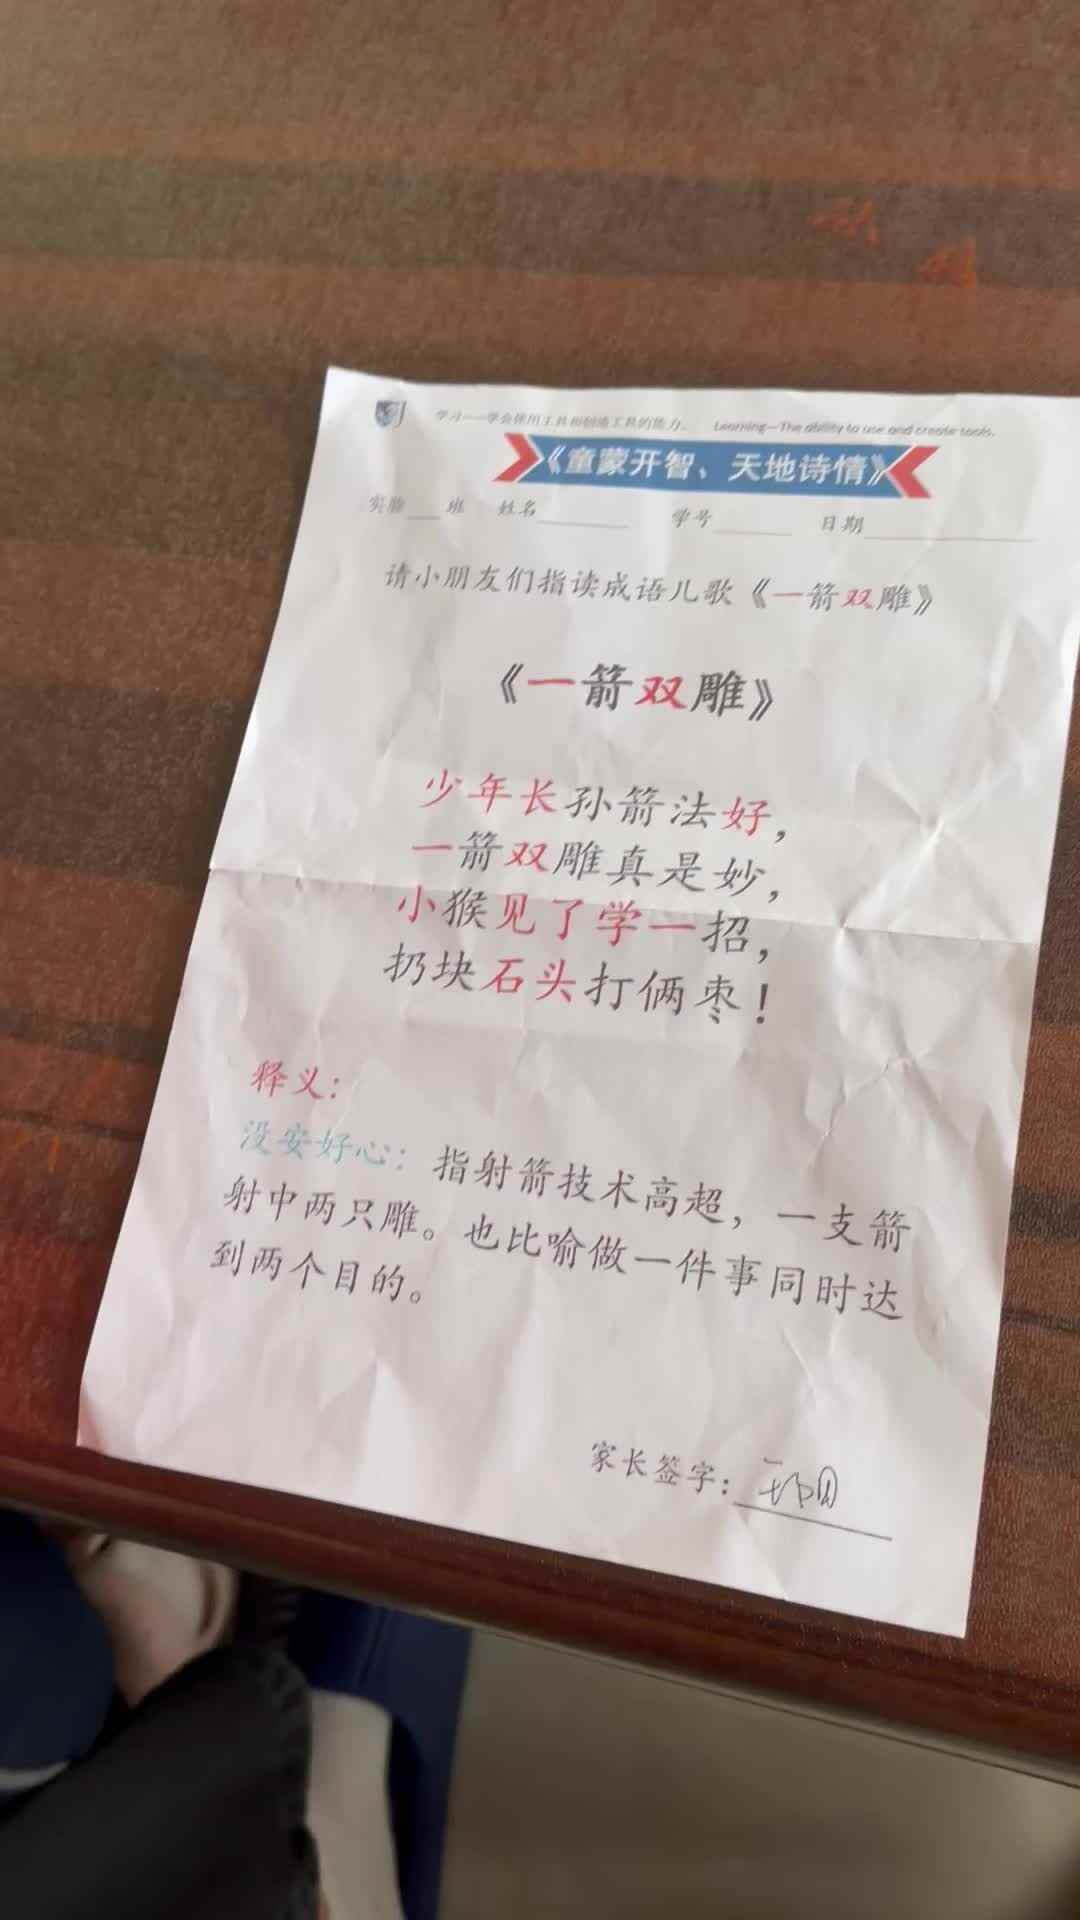 学习——学会使用工具和创造工具的能力。 Learning—The ability to use and create tools.
《童蒙开智、天地诗情》
实验 班 姓名 学号 日期
请小朋友们指读成语儿歌《一箭双雕》
《一箭双雕》
少年长孙箭法好，
一箭双雕真是妙，
小猴见了学一招，
扔块石头打俩枣！
释义：
没安好心：指射箭技术高超，一支箭
射中两只雕。也比喻做一件事同时达
到两个目的。
家长签字：